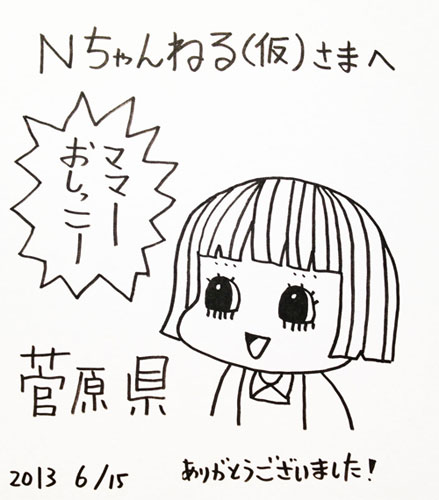 Nちゃんねる(仮)さまへ
ママー
おしっこー
菅原県
2013 6/15 ありがとうございました!